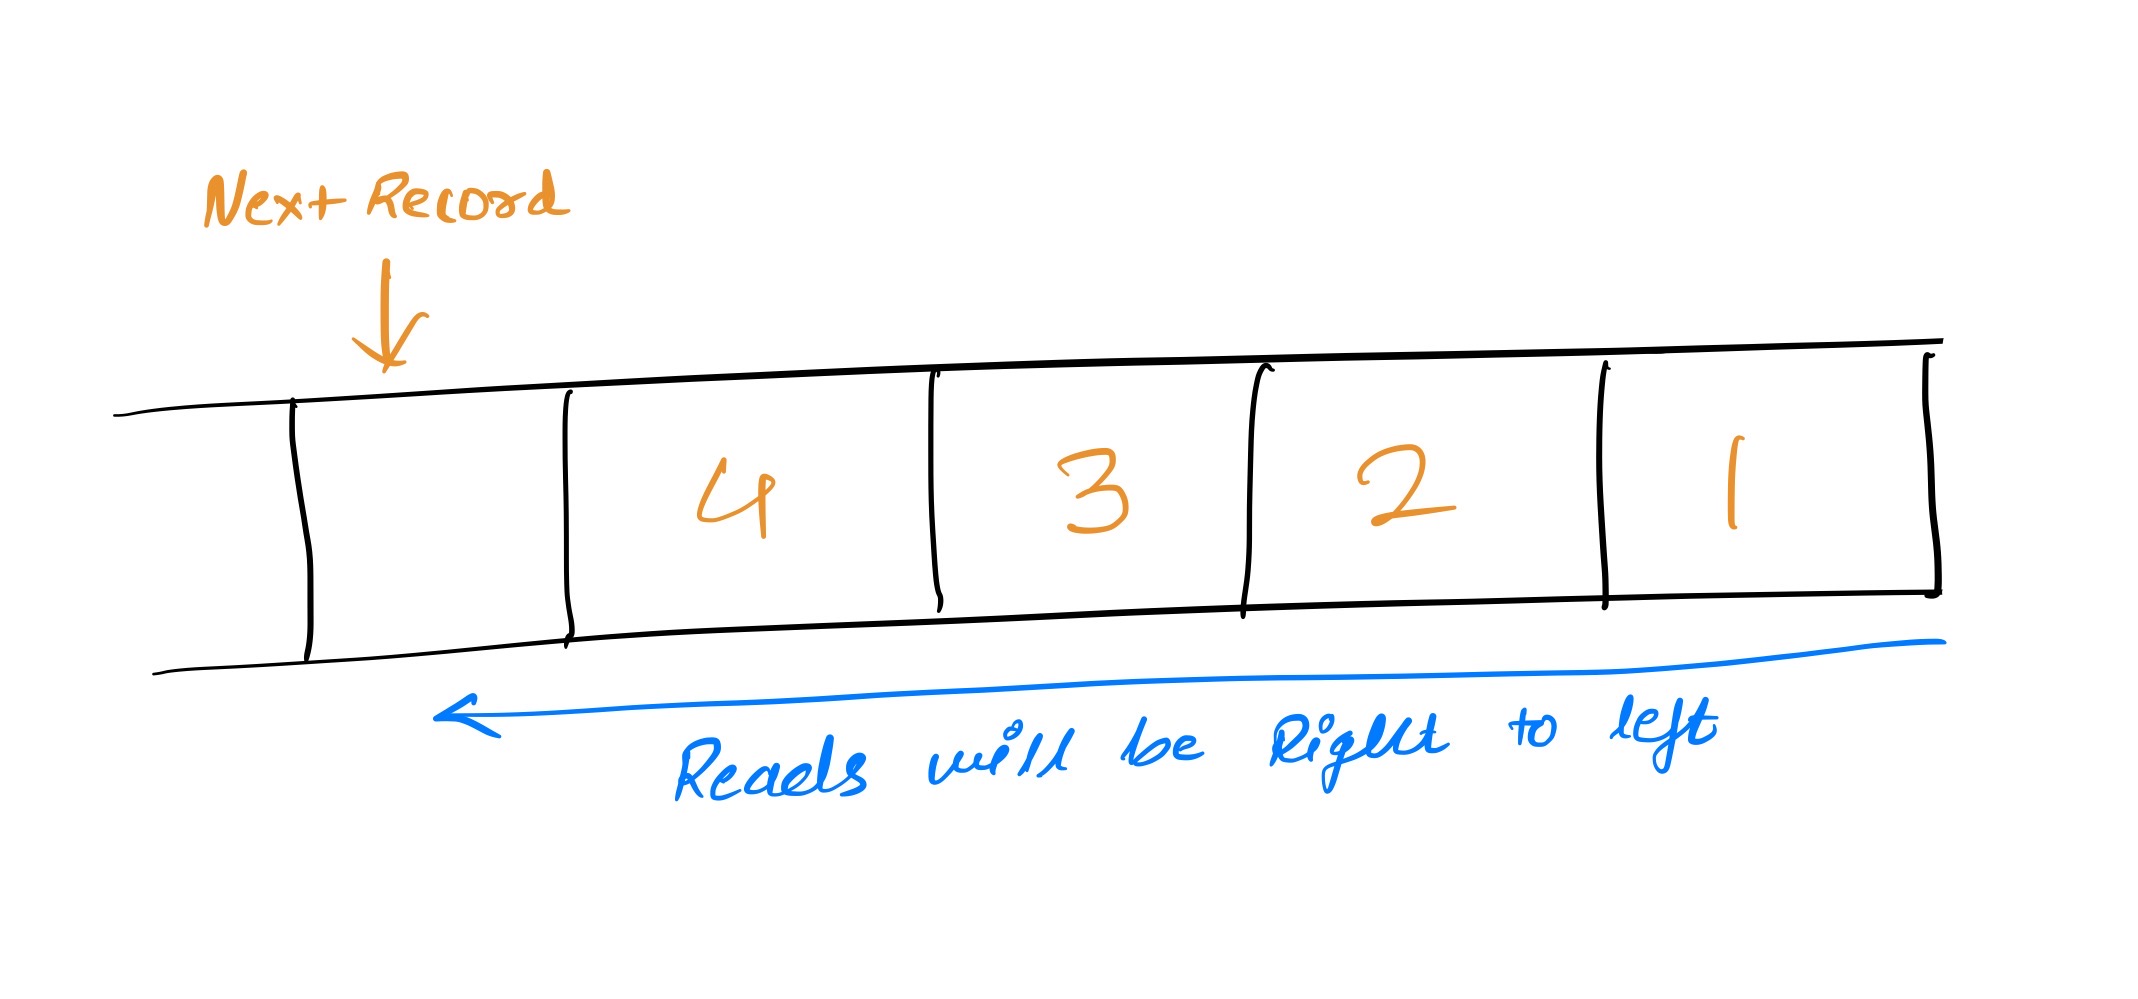 Next Record
4 3 2 1
Reads will be Right to left